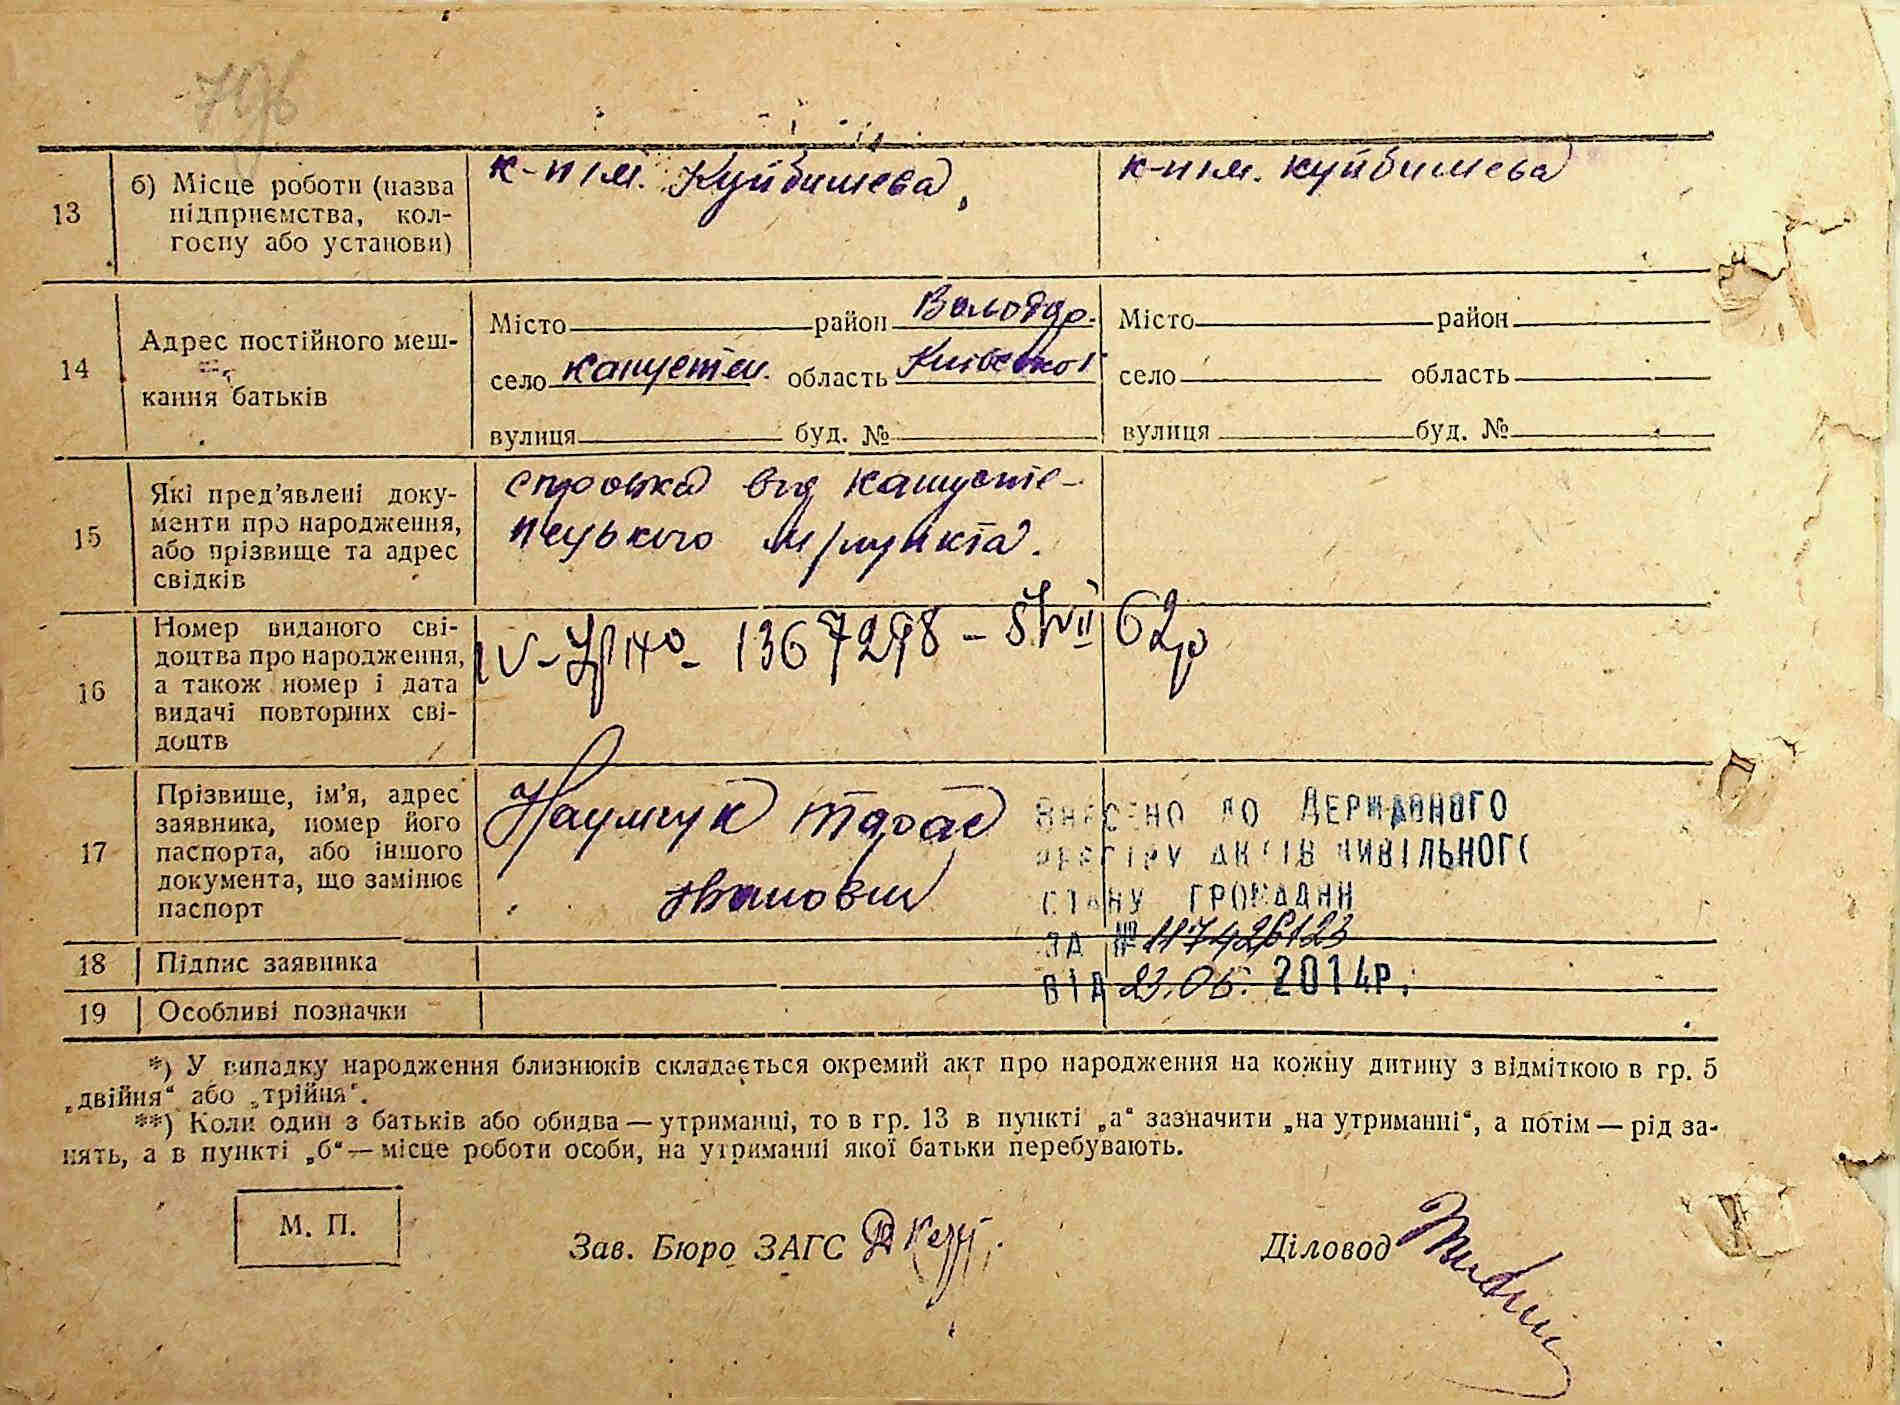 796
13
б) Місце роботи (назва
підприємства, кол-
госпу або установи)
к-п ім. Куйбишева,
к-п ім. Куйбишева
14
Адрес постійного меш-
кання батьків
Місто район Володар.
село Капустен. область Київської
вулиця буд. №
Місто район
село область
вулиця буд. №
15
Які пред'явлені доку-
менти про народження,
або прізвище та адрес
свідків
справка від капусте-
нецького м/пункта.
16
Номер виданого сві-
доцтва про народження,
а також номер і дата
видачі повторних сві-
доцтв
1367298 - 62р
17
Прізвище, ім'я, адрес
заявника, номер його
паспорта, або іншого
документа, що замінює
паспорт
Наумчук Тарас
Іванович
Внесено до Державного
реєстру актів цивільного
стану громадян
за № 117426123
від 23.06. 2014р.
18 Підпис заявника
19 Особливі позначки
*) У випадку народження близнюків складається окремий акт про народження на кожну дитину з відміткою в гр. 5
„двійня“ або „трійня“.
**) Коли один з батьків або обидва — утриманці, то в гр. 13 в пункті „а“ зазначити „на утриманні“, а потім — рід за-
нять, а в пункті „б“ — місце роботи особи, на утриманні якої батьки перебувають.
М. П.
Зав. Бюро ЗАГС
Діловод